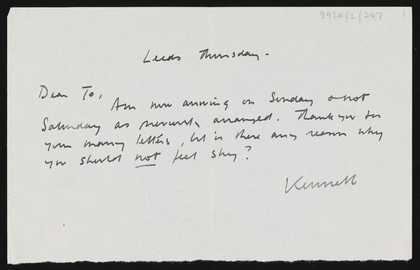 9920/2/247
Leeds Thursday.
Dear To,
Am now arriving on Sunday & not
Saturday as previously arranged. Thank you for
your many letters, but is there any reason why
you should not feel shy?
Kenneth